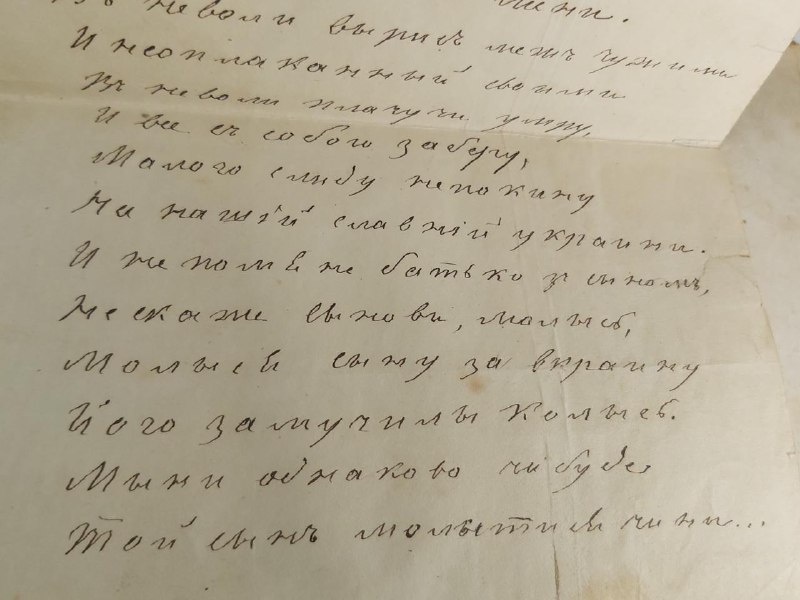 мени.
неволи вырисъ межъ чужими
И неоплаканный своими
Въ неволи плачучи умру,
И все съ собою заберу,
Малого слиду непокину
На нашій славній украини.
И непомяне батько зъ сыномъ,
Нескаже сынови, молысь,
Молыся сыну за вкраину
Його замучилы колысь.
Мыни однаково чи буде
Той сынъ молытыся чи ни...